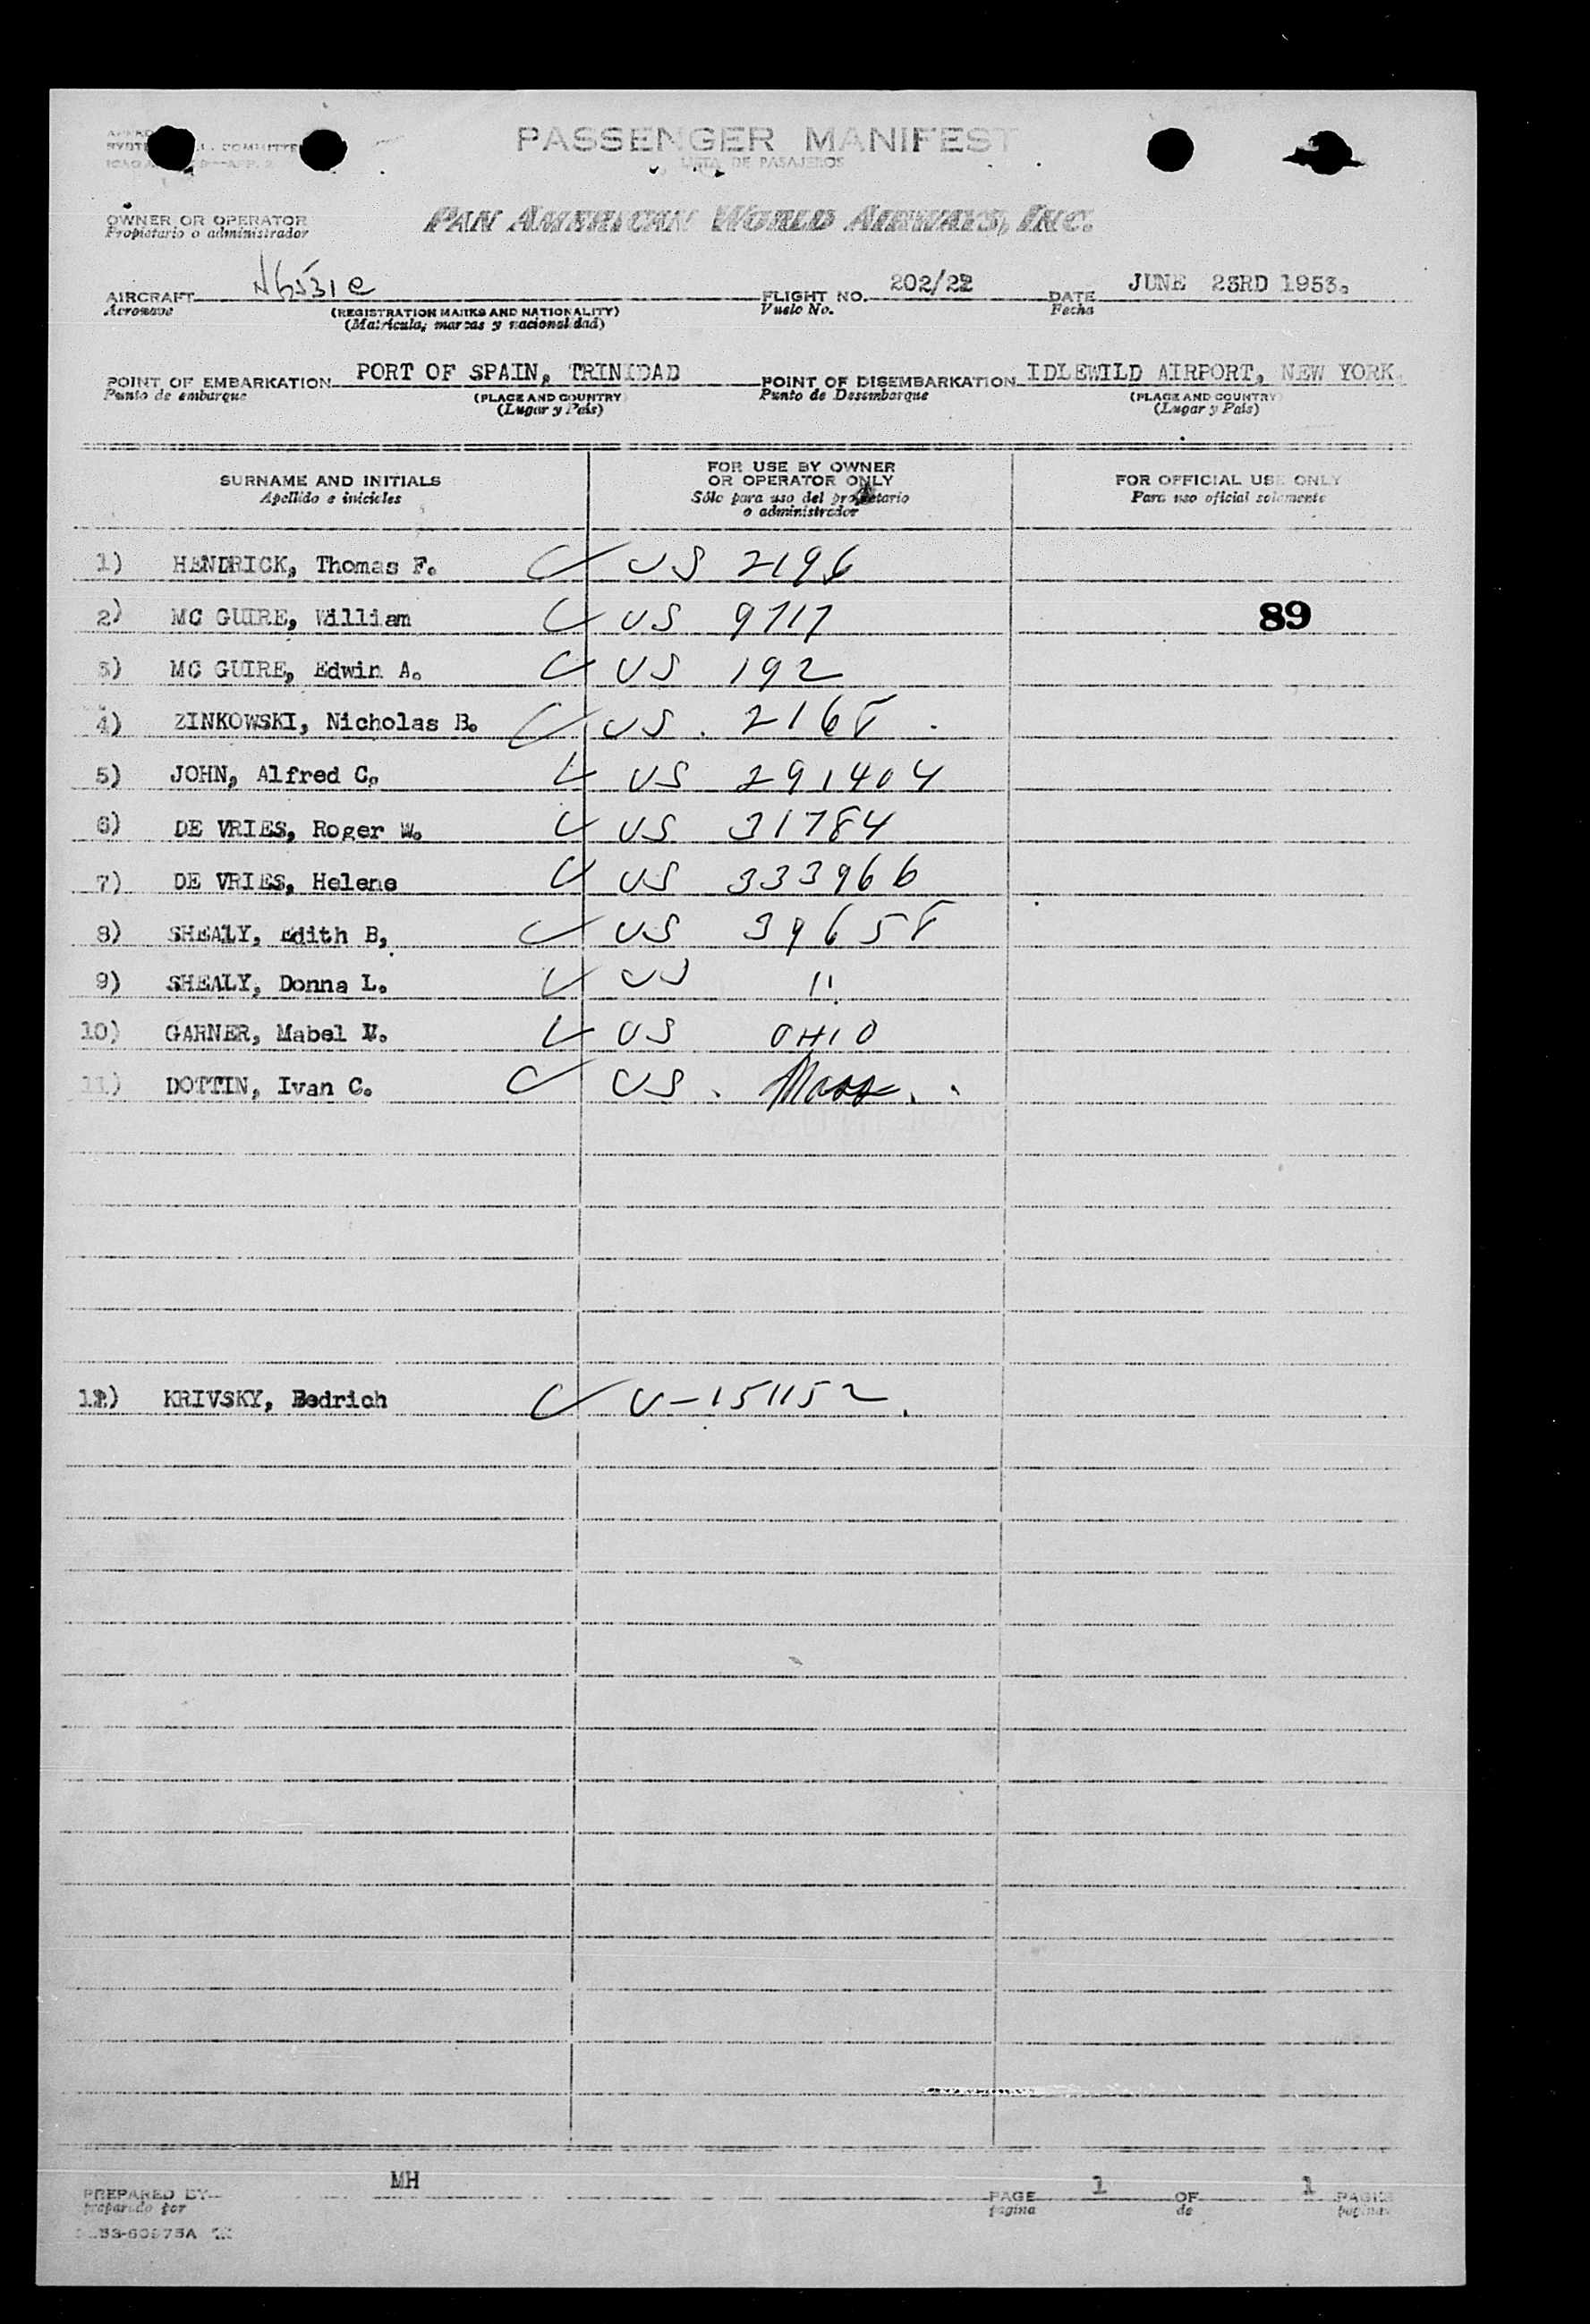 PASSENGER MANIFEST
LISTA DE PASAJEROS
OWNER OR OPERATOR
Propietario o administrador
PAN AMERICAN WORLD AIRWAYS, INC.
AIRCRAFT N6531C FLIGHT NO. 202/22 DATE JUNE 23RD 1953.
Aeronave (REGISTRATION MARKS AND NATIONALITY) Vuelo No. Fecha
(Matricula, marcas y nacionalidad)
POINT OF EMBARKATION PORT OF SPAIN, TRINIDAD POINT OF DISEMBARKATION IDLEWILD AIRPORT, NEW YORK.
Punto de embarque (PLACE AND COUNTRY) Punto de Desembarque (PLACE AND COUNTRY)
(Lugar y País) (Lugar y País)
SURNAME AND INITIALS FOR USE BY OWNER OR OPERATOR ONLY FOR OFFICIAL USE ONLY
Apellido e iniciales Sólo para uso del propietario o administrador Para uso oficial solamente
1) HENDRICK, Thomas F. US 2196
2) MC GUIRE, William US 9717 89
3) MC GUIRE, Edwin A. US 192
4) ZINKOWSKI, Nicholas B. US. 2168
5) JOHN, Alfred C. US 291404
6) DE VRIES, Roger W. US 31784
7) DE VRIES, Helene US 333966
8) SHEALY, Edith B, US 39658
9) SHEALY, Donna L. US "
10) GARNER, Mabel V. US OHIO
11) DOTTIN, Ivan C. US. Mass.
12) KRIVSKY, Bedrich V-151152.
MH
PREPARED BY PAGE 1 OF 1 PAGES
preparado por pagina de paginas